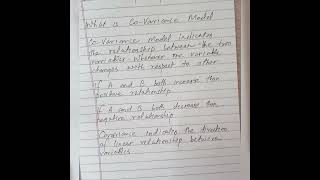 What is Co-Variance Model
Co-Variance Model indicates
the relationship between the two
variables whatever the variable
changes with respect to other
If A and B both increase than
positive relationship
If A and B both decrease than
negative relationship
Covariance indicates the direction
of linear relationship between
variables